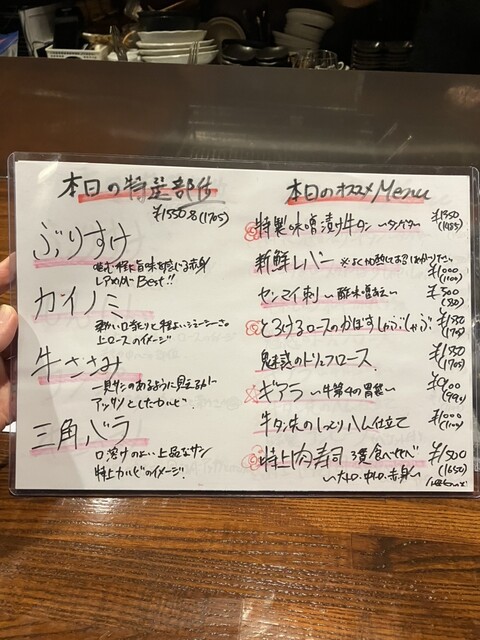 本日の特選部位
¥1550.各(1705)
ぶりすけ
噛む程に旨味を感じる赤身
レアめがBest!!
カイノミ
柔かい口当たりと程よいジューシーさ。
上ロースのイメージ
牛ささみ
一見サシのあるように見えるが…
アッサリとしたカルビ。
三角バラ
口溶けのよい上品なサシ
特上カルビのイメージ
本日のオススメMenu
特製味噌漬け牛タン 〜タンゲタ〜 ¥1350 (1485)
新鮮レバー ¥1000 (1100)
センマイ刺し 酢味噌和え ¥500 (550)
とろけるロースのかぼすしゃぶしゃぶ ¥1550 (1705)
魅惑のトリュフロース ¥1550 (1705)
ギアラ 〜牛第4の胃袋〜 ¥900 (990)
牛タン先のしっとりハム仕立て ¥1000 (1100)
特上肉寿司 3種食べ比べ ¥1500 (1650)
〜大トロ・中トロ・赤身〜